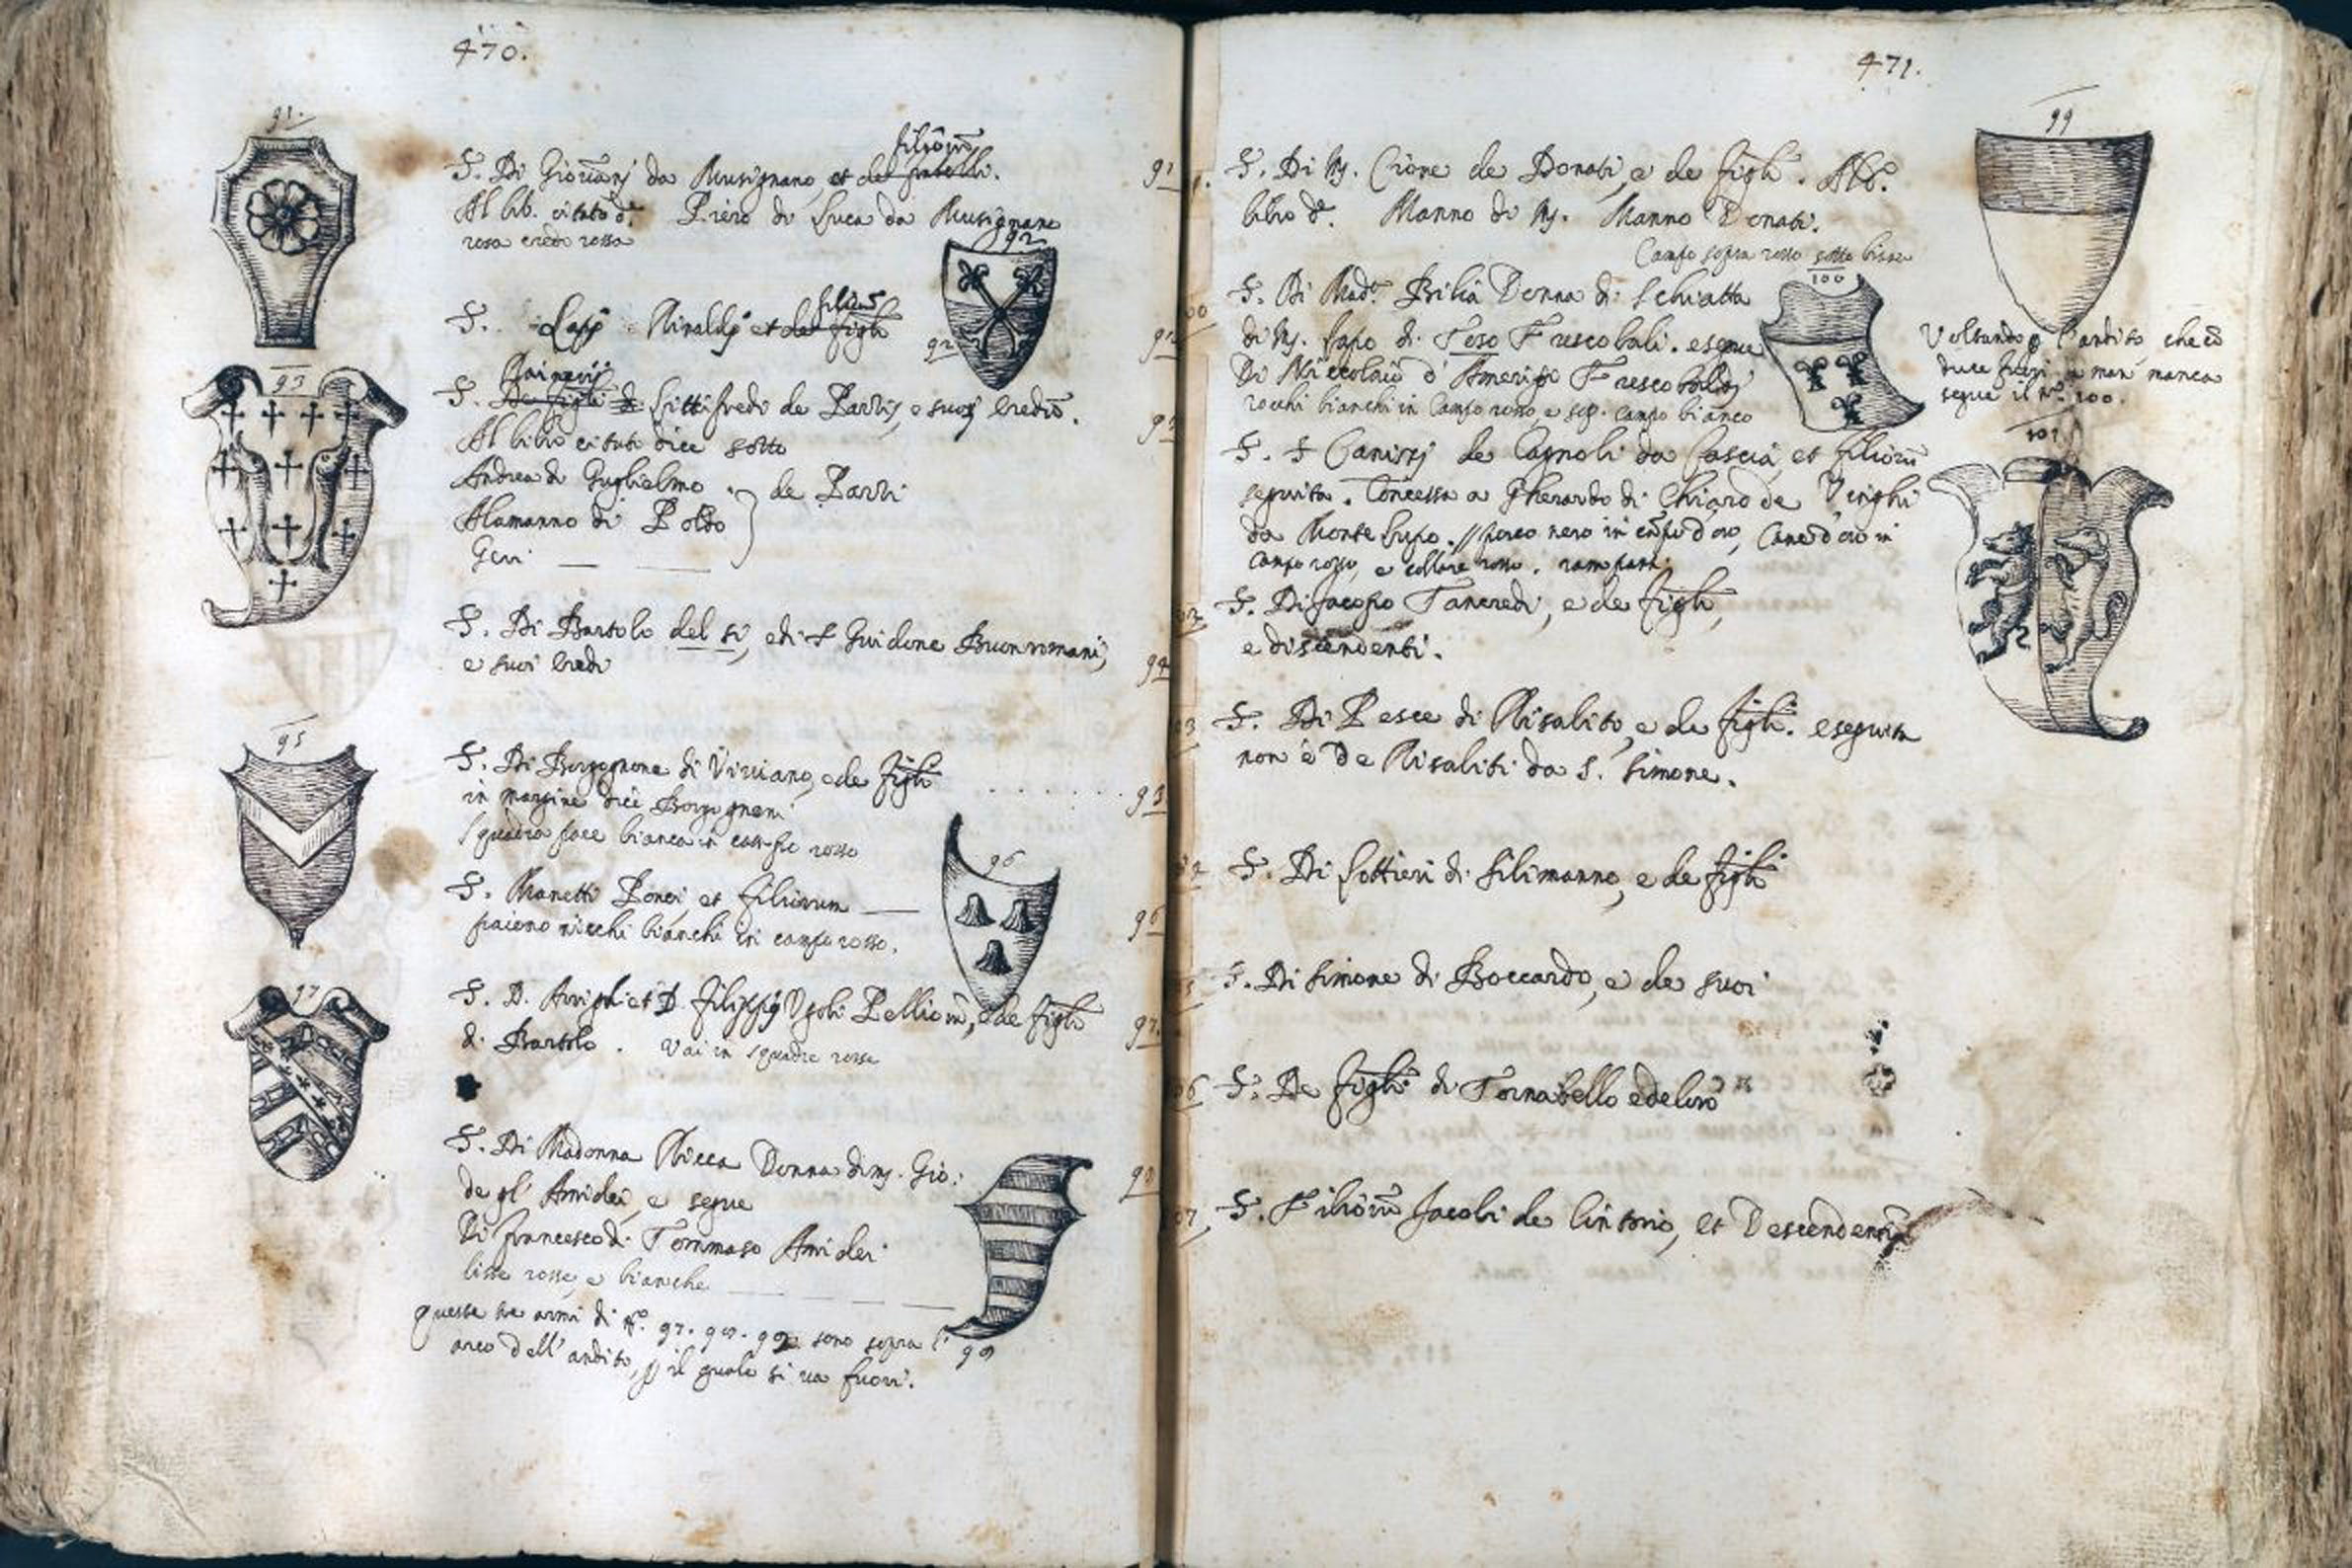 470.
91.
filiorũ
S. Di Giovãnj da Musignano, et del fratelli.
91
Al lib. citato dᵒ. Piero di Luca da Musignano
rosa credo rossa
92
filiorũ
S. Lapi Rinaldi et de figli
92
92
93
Rainerij
S. De figli di Littifredi de Pazzi, e suoj heredi.
93
Al libro citato dice sotto
Andrea di Guglielmo
de Pazzi
Alamanno di Poldo
Geri
S. Di Bartolo del Si, e di S Guidone Buonromani,
94
e suoi heredi
95
S. Di Borgognone di Viviano, e de figli
95
in margine dice Borgognoni
squadra pare bianca in campo rosso
96
S. Manetti Ponci et filiorum
96
paiono nicchi bianchi in campo rosso.
97
S. D. Arrighi et D. Filippi Ugoli, e de figli
97.
di Bartolo. Vai in squadre rosse
S. Di Madonna Ricca Donna di mͬ. Gio:
98
de gl' Amidei, e segue
Di Francesco di Tommaso Amidei
liste rosse, e bianche
Queste tre armi di Nᵒ. 97. 98. 99 sono sopra l'
arco dell' andito, p il quale si va fuori.
98
471.
99
S. Di Mͬ. Cione de Donati, e de figli. Al dᵒ.
libro dᵒ. Manno di Mͬ. Manno Donati.
Campo sopra rosso sotto bianco
100
S. Di Madᵃ. Bilia Donna di Schiatta
di Mͬ. Lapo di Teso Frescobali. e segue
Di Niccolaio d' Amerigo Frescobaldj
rocchi bianchi in Campo rosso, e sop. campo bianco
Voltando p l'andito che cõ
duce fuori a man manca
segue il Nᵒ. 100.
101
S. S Canigj de Cagnoli da Cascia, et filiorũ
seguita. Concessa a Gherardo di Chiaro de Vinghi
da Monte Lupo. // porco nero in campo d'oro, Cane d'oro in
campo rosso, e collare rosso. rampanti
S. Di Jacopo Tancredi, e de figli,
e discendenti.
S. Di Pesce di Risalito, e de figli. e seguita
non è De Risaliti da S. Simone.
S. Di Lottieri di Filimanno, e de figli
S. Di Simone di Boccardo, e de suoi
S. De figli di Tornabello e de loro
S. Filiorũ Jacobi de Cintorio, et Descendentiũ